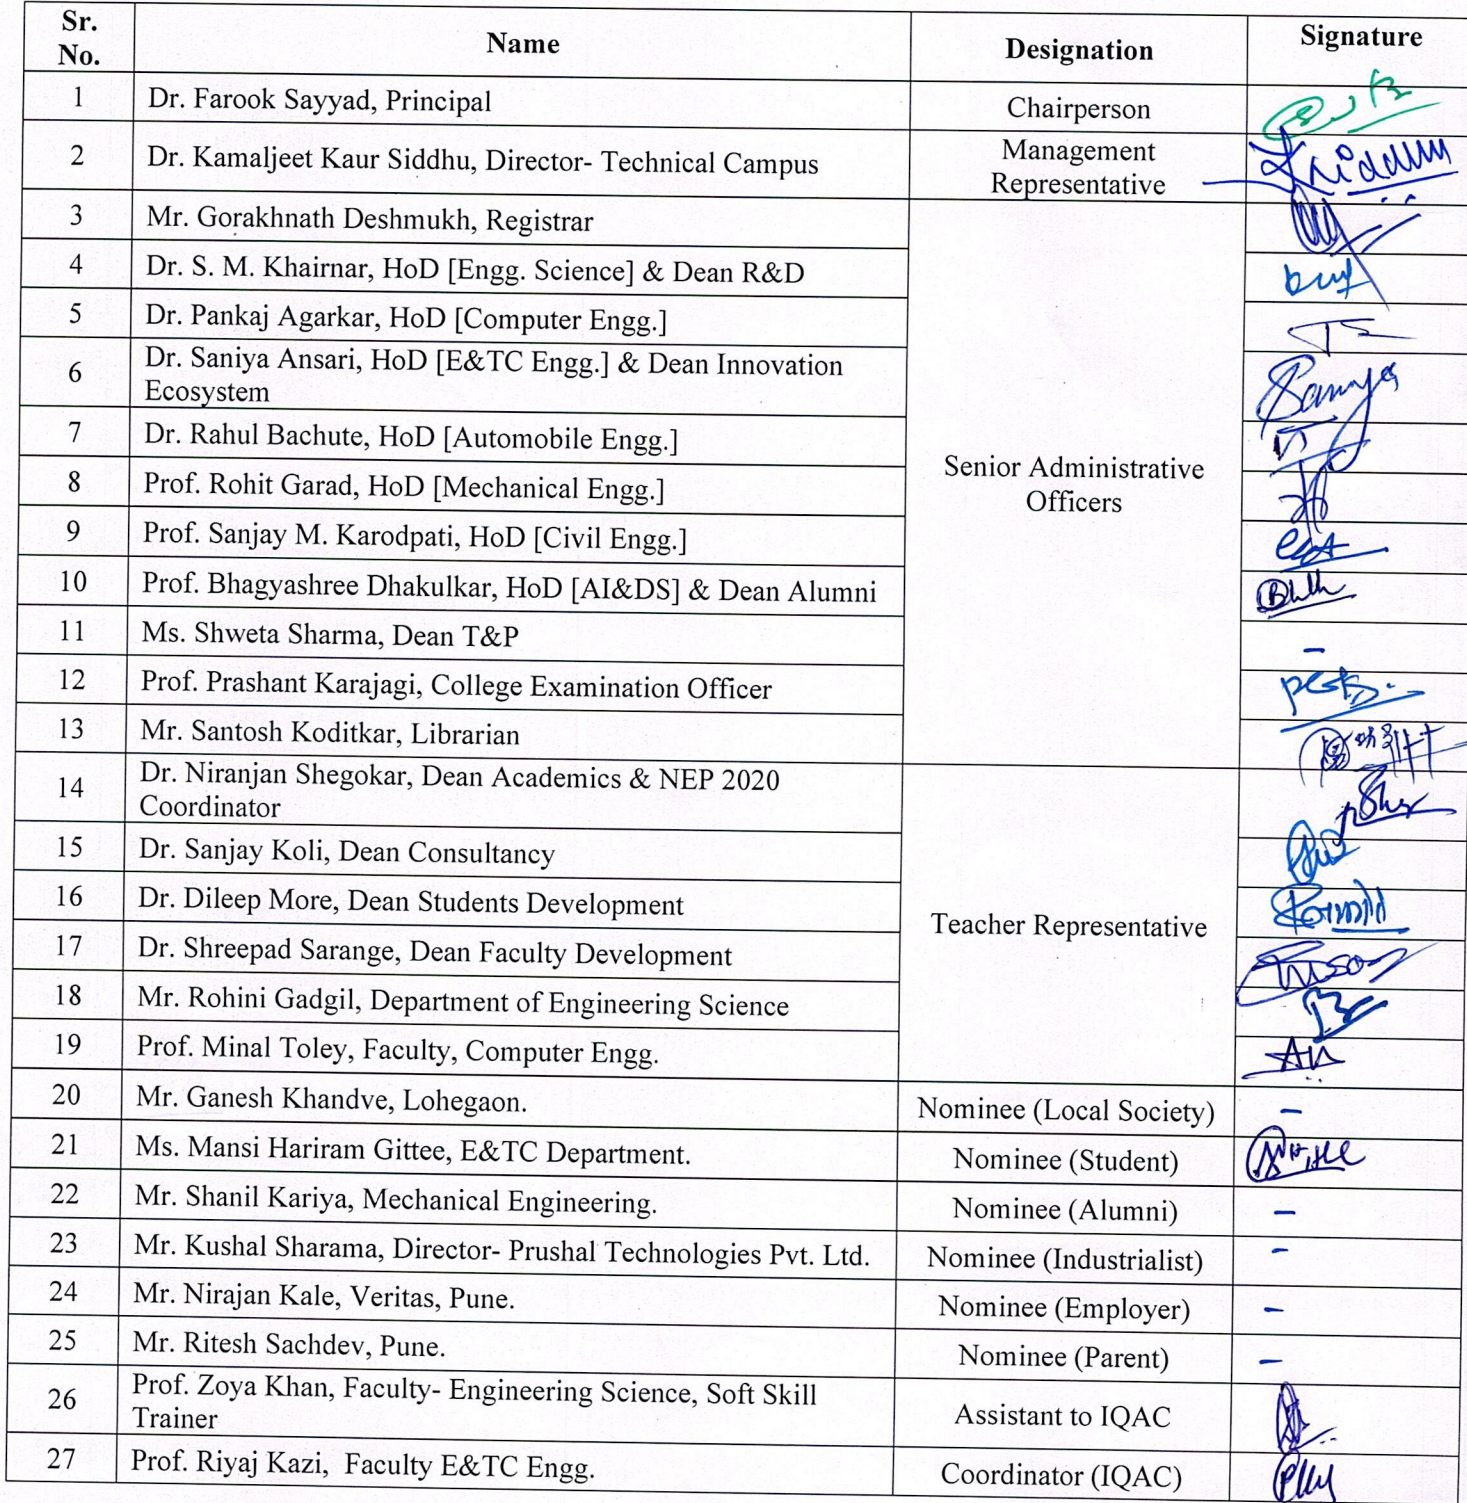 Sr. No. Name Designation Signature
1 Dr. Farook Sayyad, Principal Chairperson
2 Dr. Kamaljeet Kaur Siddhu, Director- Technical Campus Management Representative
3 Mr. Gorakhnath Deshmukh, Registrar
4 Dr. S. M. Khairnar, HoD [Engg. Science] & Dean R&D
5 Dr. Pankaj Agarkar, HoD [Computer Engg.]
6 Dr. Saniya Ansari, HoD [E&TC Engg.] & Dean Innovation
Ecosystem
7 Dr. Rahul Bachute, HoD [Automobile Engg.]
Senior Administrative
Officers
8 Prof. Rohit Garad, HoD [Mechanical Engg.]
9 Prof. Sanjay M. Karodpati, HoD [Civil Engg.]
10 Prof. Bhagyashree Dhakulkar, HoD [AI&DS] & Dean Alumni
11 Ms. Shweta Sharma, Dean T&P –
12 Prof. Prashant Karajagi, College Examination Officer
13 Mr. Santosh Koditkar, Librarian
14 Dr. Niranjan Shegokar, Dean Academics & NEP 2020
Coordinator
15 Dr. Sanjay Koli, Dean Consultancy
16 Dr. Dileep More, Dean Students Development
Teacher Representative
17 Dr. Shreepad Sarange, Dean Faculty Development
18 Mr. Rohini Gadgil, Department of Engineering Science
19 Prof. Minal Toley, Faculty, Computer Engg.
20 Mr. Ganesh Khandve, Lohegaon. Nominee (Local Society) –
21 Ms. Mansi Hariram Gittee, E&TC Department. Nominee (Student)
22 Mr. Shanil Kariya, Mechanical Engineering. Nominee (Alumni) –
23 Mr. Kushal Sharama, Director- Prushal Technologies Pvt. Ltd. Nominee (Industrialist) –
24 Mr. Nirajan Kale, Veritas, Pune. Nominee (Employer) –
25 Mr. Ritesh Sachdev, Pune. Nominee (Parent) –
26 Prof. Zoya Khan, Faculty- Engineering Science, Soft Skill
Trainer Assistant to IQAC
27 Prof. Riyaj Kazi, Faculty E&TC Engg. Coordinator (IQAC)